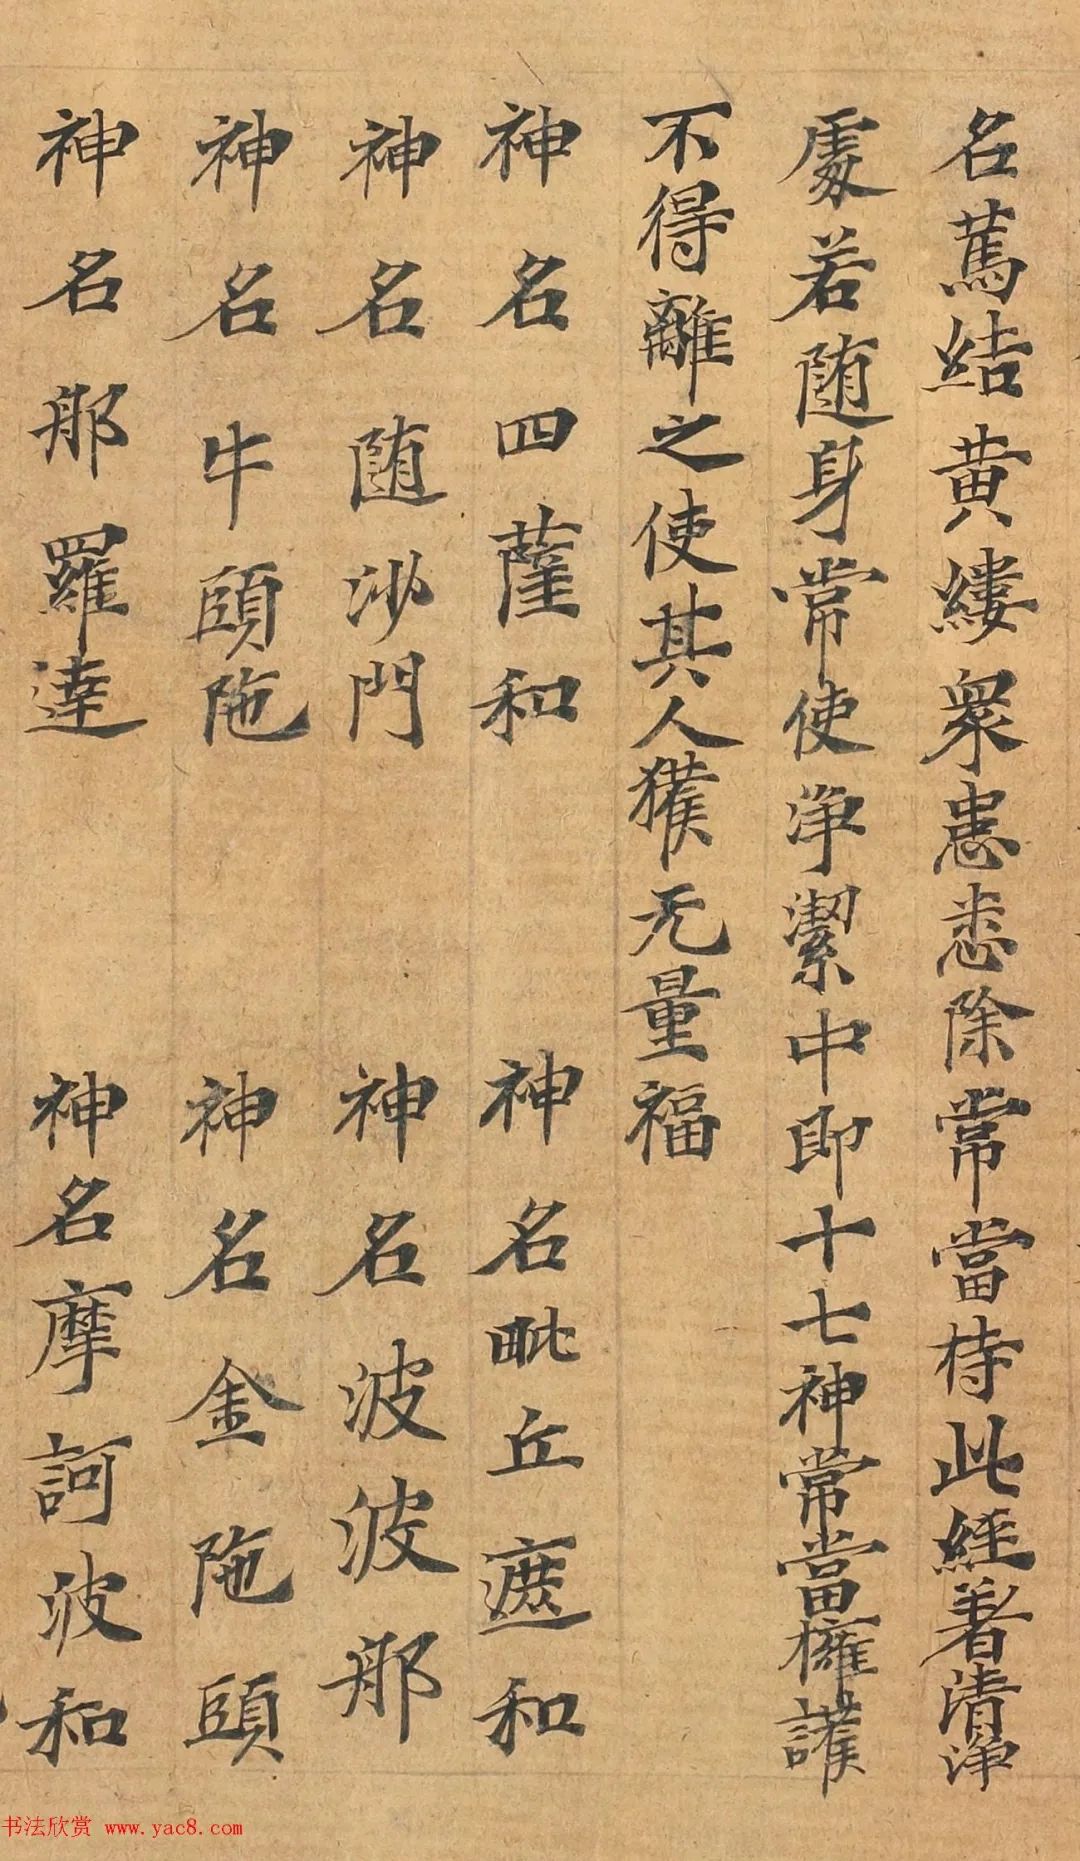 名萬結黃縷衆患悉除常當持此經著清淨
處若随身常使淨潔中即十七神常當擁護
不得離之使其人獲无量福
神名四薩和 神名毗丘遮和
神名随沙門 神名波波那
神名牛頭陁 神名金陁頭
神名那羅達 神名摩訶波和
书法欣赏 www.yac8.com